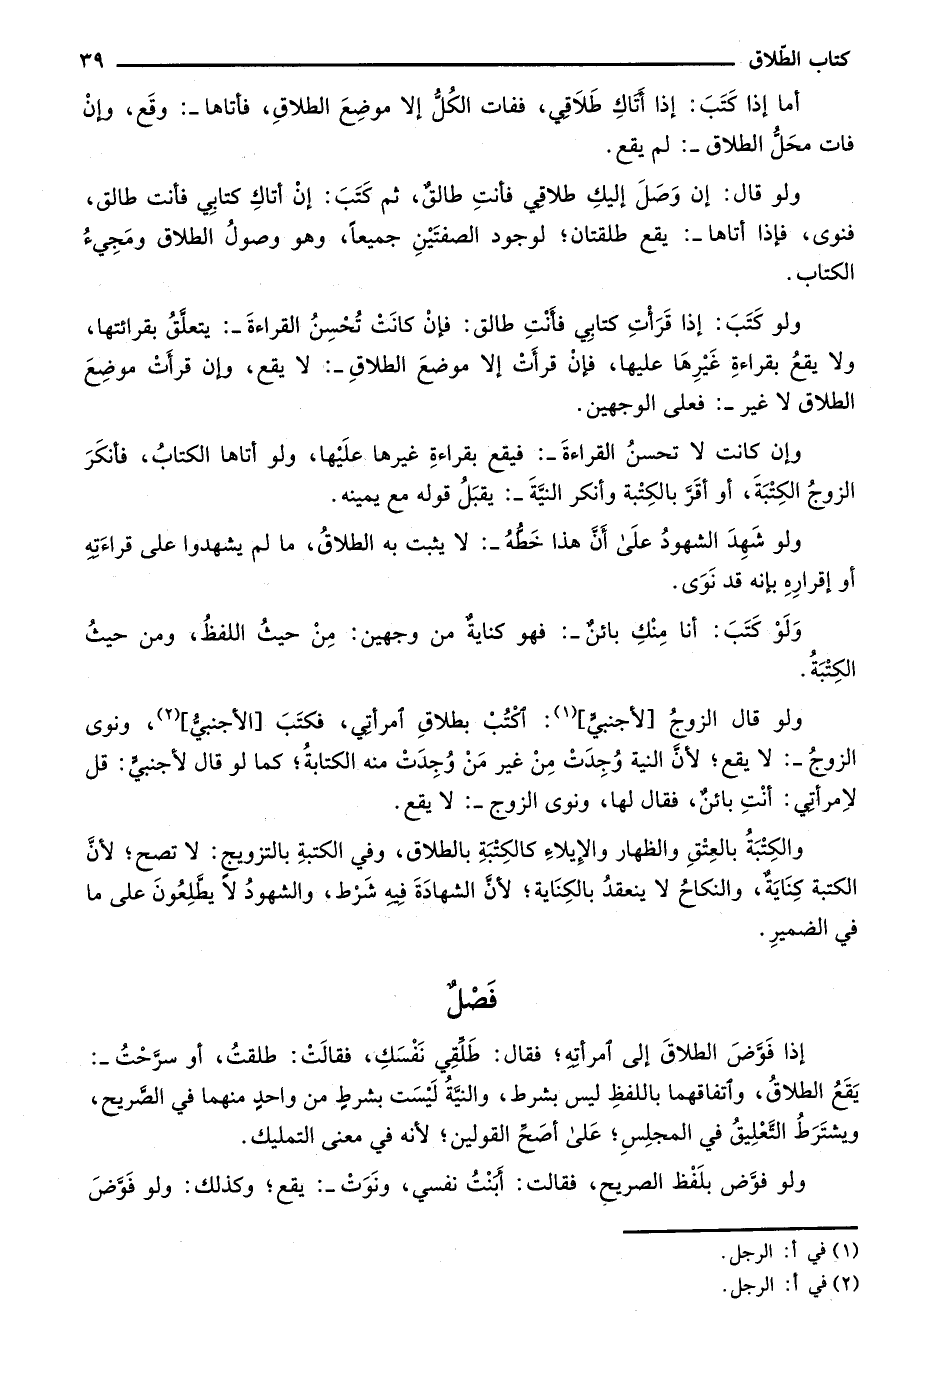 كتاب الطّلاق ٣٩
أما إذا كَتَبَ: إذا أَتَاكِ طَلَاقِي، ففات الكُلُّ إلا موضِعَ الطلاقِ، فأتاها ـ: وقَع، وإنْ
فات محَلُّ الطلاق ـ: لم يقع.
ولو قال: إن وَصَلَ إليكِ طلاقِي فأنتِ طالقٌ، ثم كَتَبَ: إنْ أتاكِ كتابِي فأنت طالق،
فنوى، فإذا أتاها ـ: يقع طلقتان؛ لوجود الصفتَيْنِ جميعاً، وهو وصولُ الطلاق ومَجِيءُ
الكتاب.
ولو كَتَبَ: إذا قَرَأْتِ كتابِي فأَنْتِ طالق: فإنْ كانَتْ تُحْسِنُ القراءةَ ـ: يتعلَّقُ بقرائتها،
ولا يقعُ بقراءةِ غَيْرِهَا عليها، فإنْ قرأَتْ إلا موضعَ الطلاقِ ـ: لا يقع، وإن قرأَتْ موضِعَ
الطلاق لا غير ـ: فعلى الوجهين.
وإن كانت لا تحسنُ القراءةَ ـ: فيقع بقراءةِ غيرها علَيْها، ولو أتاها الكتابُ، فأنكَرَ
الزوجُ الكِتْبَةَ، أو أقَرَّ بالكِتْبة وأنكر النيَّةَ ـ: يقبَلُ قوله مع يمينه.
ولو شَهِدَ الشهودُ علَىٰ أَنَّ هذا خَطُّهُ ـ: لا يثبت به الطلاقُ، ما لم يشهدوا على قراءَتِهِ
أو إقرارِهِ بإنه قد نَوَى.
وَلَوْ كَتَبَ: أنا مِنْكِ بائنٌ ـ: فهو كنايةٌ من وجهين: مِنْ حيثُ اللفظُ، ومن حيثُ
الكِتْبَةُ.
ولو قال الزوجُ [لأجنبيٍّ](١): ٱكْتُبْ بطلاقِ ٱمرأتِي، فكتَبَ [الأجنبيُّ](٢)، ونوى
الزوجُ ـ: لا يقع؛ لأنَّ النية وُجِدَتْ مِنْ غير مَنْ وُجِدَتْ منه الكتابةُ؛ كما لو قال لأجنبيٍّ: قل
لاِمرأتِي: أنْتِ بائنٌ، فقال لها، ونوى الزوج ـ: لا يقع.
والكِتْبَةُ بالعِتْقِ والظهار والإيلاءِ كالكِتْبَةِ بالطلاق، وفي الكتبةِ بالتزويج: لا تصح؛ لأنَّ
الكتبة كِنَايَةٌ، والنكاحُ لا ينعقدُ بالكِنَاية؛ لأنَّ الشهادَةَ فِيهِ شَرْط، والشهودُ لاَ يطَّلِعُونَ على ما
في الضميرِ.
فَصْلٌ
إذا فَوَّضَ الطلاقَ إلى ٱمرأتِهِ؛ فقال: طَلِّقِي نَفْسَكِ، فقالَتْ: طلقتُ، أو سرَّحْتُ ـ:
يَقَعُ الطلاقُ، وٱتفاقهما باللفظِ ليس بشرط، والنيَّةُ لَيْسَت بشرطٍ من واحدٍ منهما في الصَّريح،
ويشتَرَطُ التَّعْلِيقُ في المجلِسِ؛ عَلَىٰ أصَحِّ القولين؛ لأنه في معنى التمليك.
ولو فوَّض بلَفْظ الصريح، فقالت: أَبَنْتُ نفسي، ونَوَتْ ـ: يقع؛ وكذلك: ولو فَوَّضَ
(١) في أ: الرجل.
(٢) في أ: الرجل.